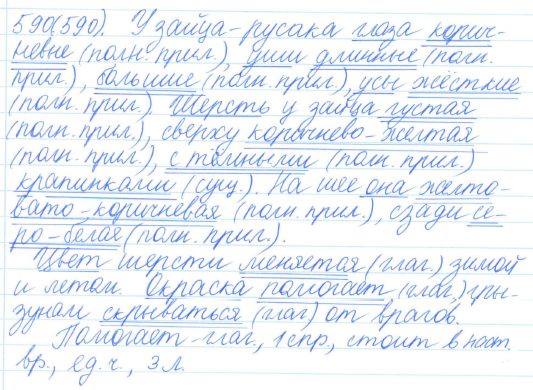 590(590). У зайца-русака глаза корич-
невые (полн. прил.), уши длинные (полн.
прил.), большие (полн. прил.), усы жёсткие
(полн. прил.). Шерсть у зайца густая
(полн. прил.), сверху коричнево-желтая
(полн. прил.), с тёмными (полн. прил.)
крапинками (сущ.). На шее она желто-
вато-коричневая (полн. прил.), сзади се-
ро-белая (полн. прил.).
Цвет шерсти меняется (глаг.) зимой
и летом. Окраска помогает (глаг.) гры-
зунам скрываться (глаг.) от врагов.
Помогает-глаг., 1 спр., стоит в наст.
вр., ед. ч., 3 л.